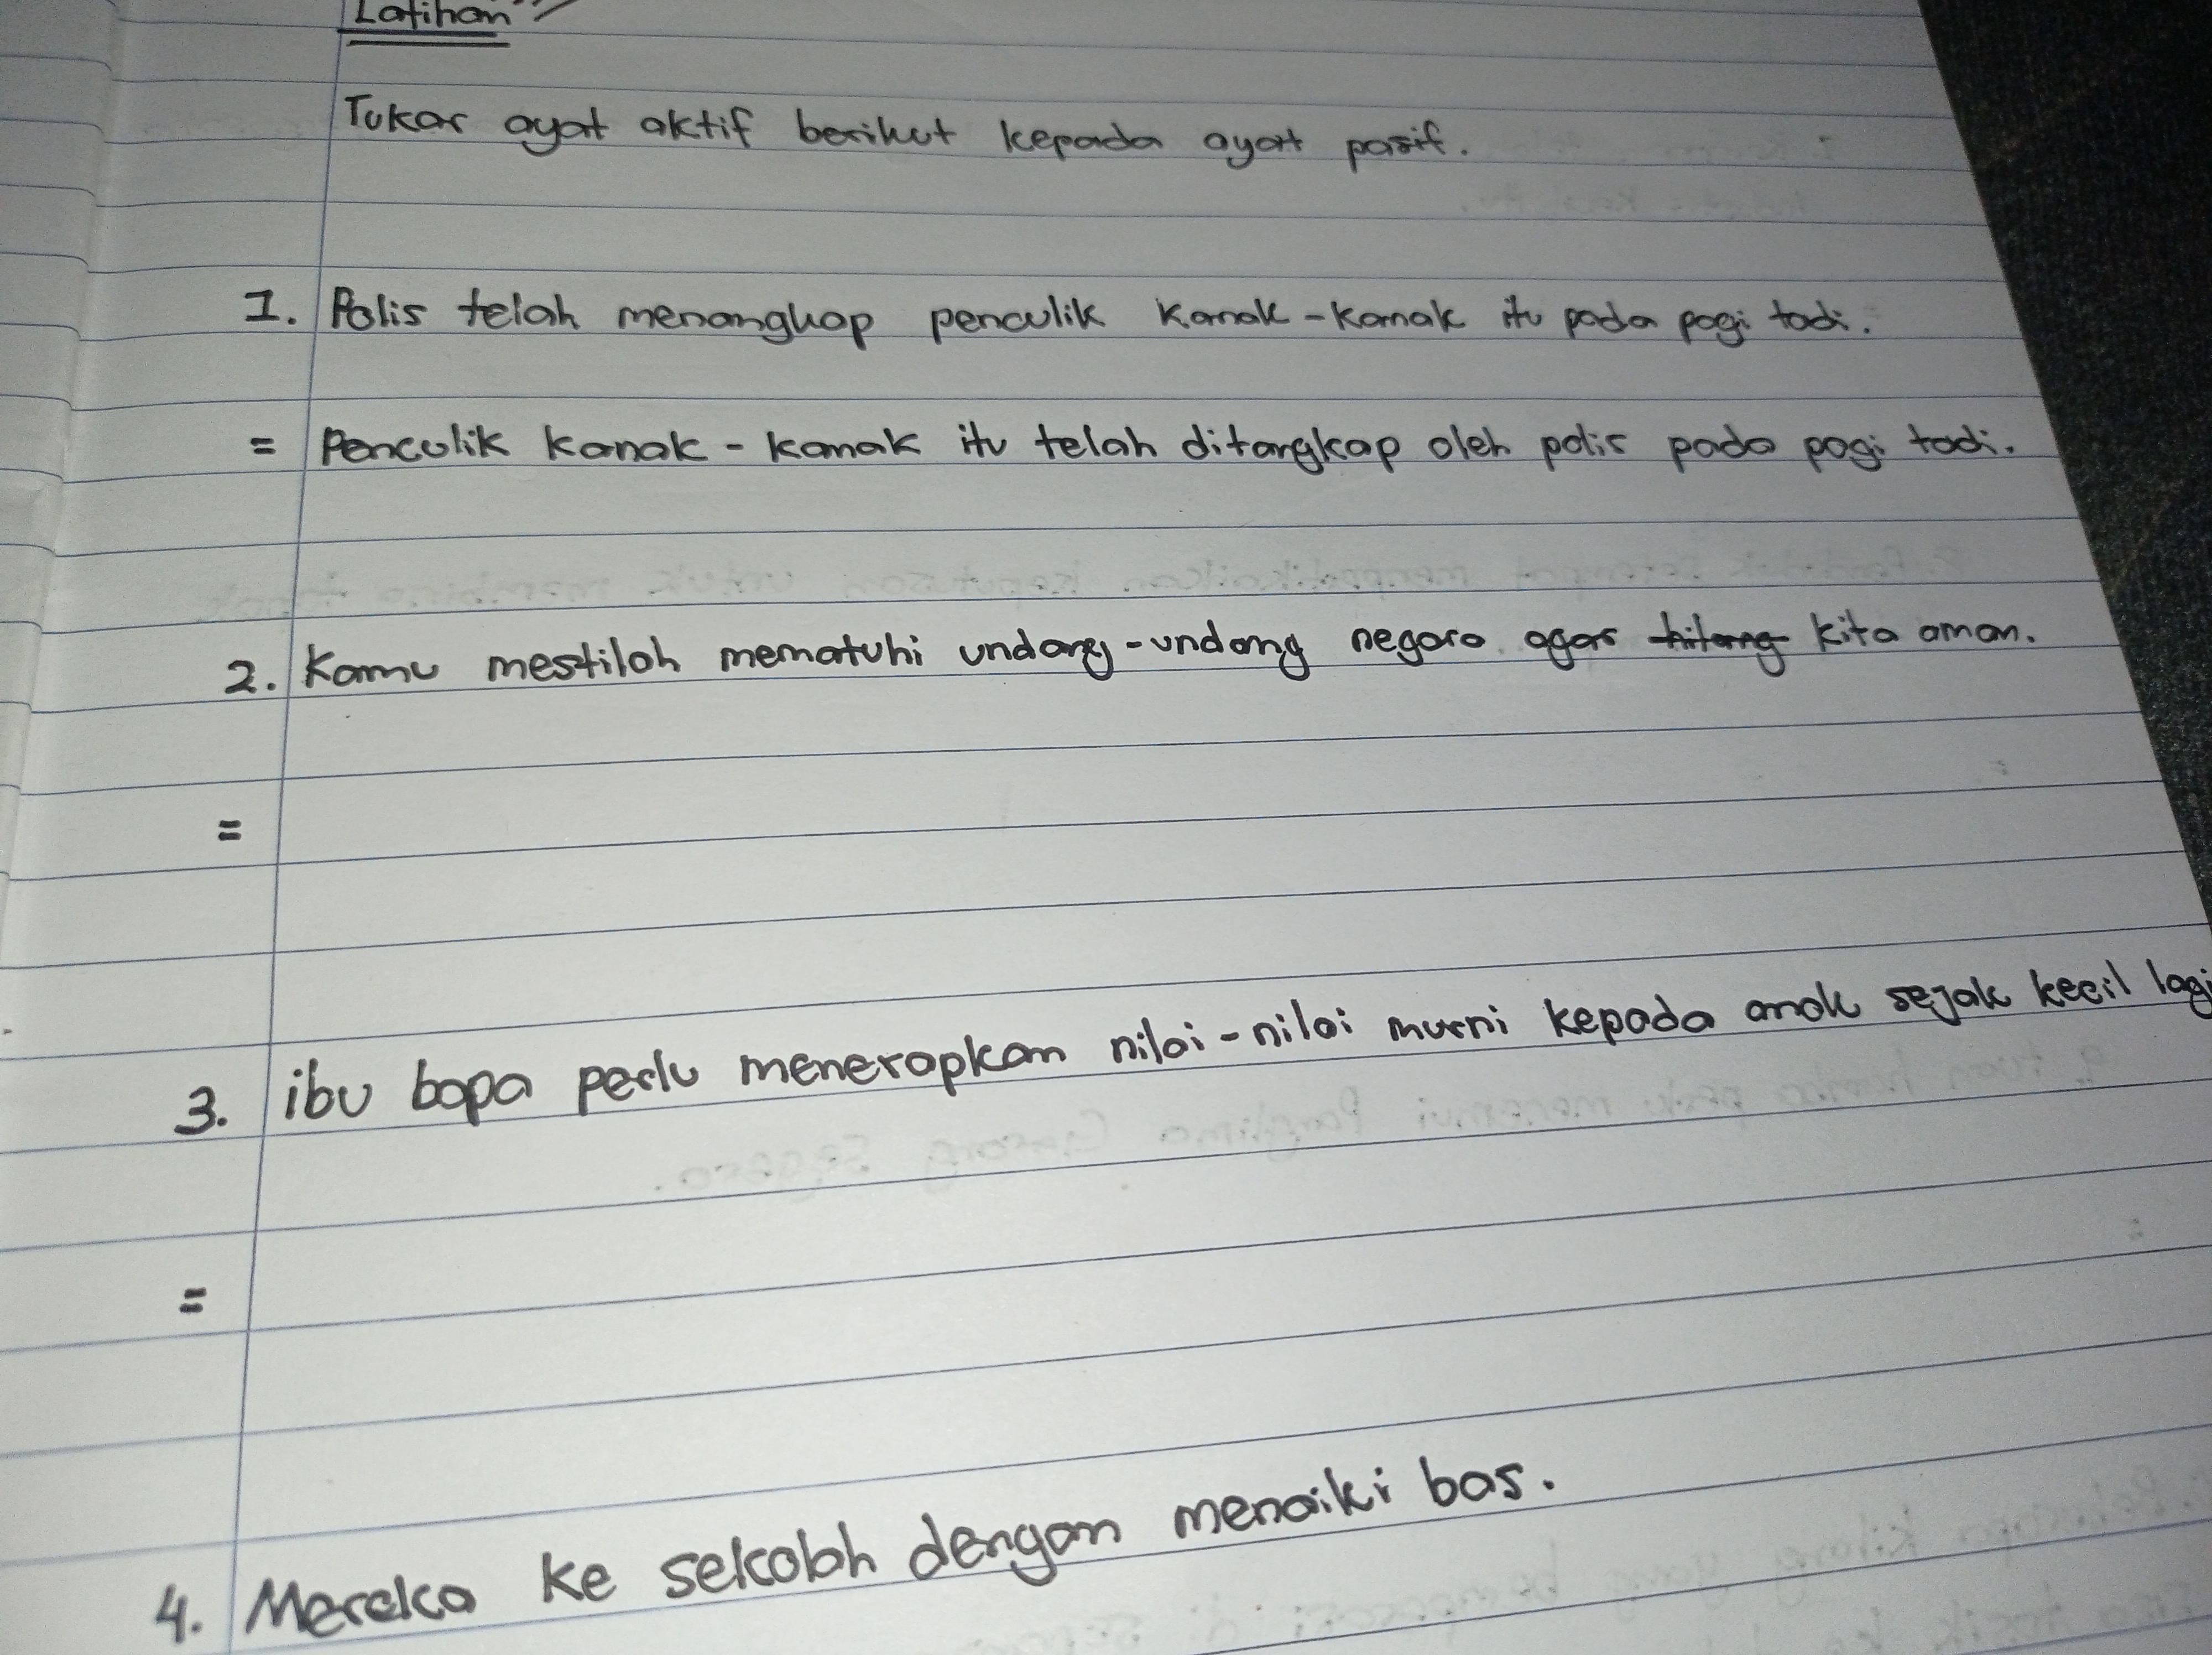 Latihan
Tukar ayat aktif berikut kepada ayat pasif.
1. Polis telah menangkap penculik kanak-kanak itu pada pagi tadi.
= Penculik kanak-kanak itu telah ditangkap oleh polis pada pagi tadi.
2. Kamu mestilah mematuhi undang-undang negara agar kita aman.
=
3. ibu bapa perlu menerapkan nilai-nilai murni kepada anak sejak kecil lagi
=
4. Mereka ke sekolah dengan menaiki bas.